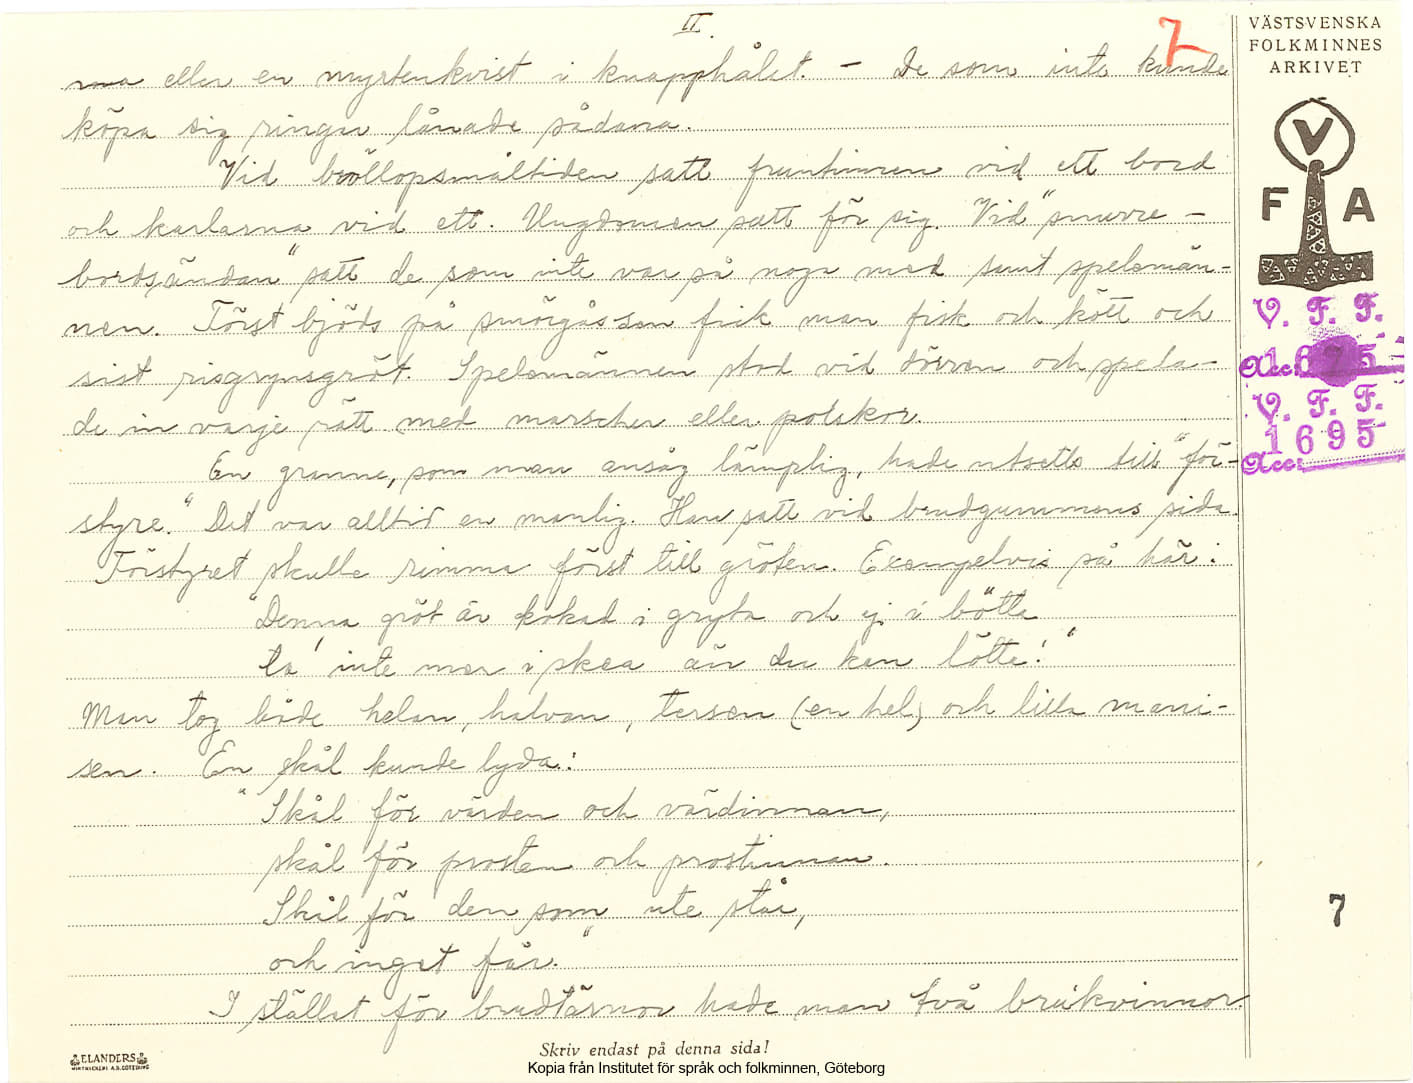 II.
7
VÄSTSVENSKA
FOLKMINNES
ARKIVET
ma eller en myrtenkvist i knapphålet. – De som inte kunde
köpa sig ringar lånade sådana.
Vid bröllopsmåltiden satt fruntimren vid ett bord
och karlarna vid ett. Ungdomen satt för sig. Vid "snurre-
bordsändan" satt de som inte var så noga med samt spelemän-
nen. Först bjöds på smörgås sen fick man fisk och kött och
sist risgrynsgröt. Spelemännen stod vid dörren och spela-
de in varje rätt med marscher eller polskor.
En granne, som man ansåg lämplig, hade utsetts till "för-
styre." Det var alltid en manlig. Han satt vid brudgummens sida.
Förstyret skulle rimma först till gröten. Exempelvis så här:
"Denna gröt är kokad i gryta och ej i bötta
ta' inte mer i skea än du kan lötta!"
Man tog både helan, halvan, tersen (en hel) och lilla mani-
sen. En skål kunde lyda:
"Skål för värden och värdinnan,
skål för prosten och prostinnan.
Skål för den som ute står,
och inget får."
I stället för brudtärnor hade man två brukvinnor.
V
F A
V. F. F.
Acc. 1675
V. F. F.
Acc. 1695
7
ELANDERS
BOKTRYCKERI A.B. GÖTEBORG
Skriv endast på denna sida!
Kopia från Institutet för språk och folkminnen, Göteborg